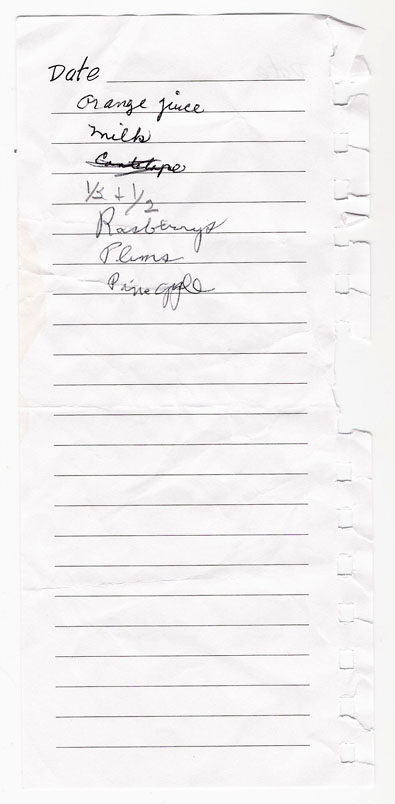 Date
orange jiuce
milk
Cantelope
1/2 + 1/2
Rasberrys
Plums
Pineapple